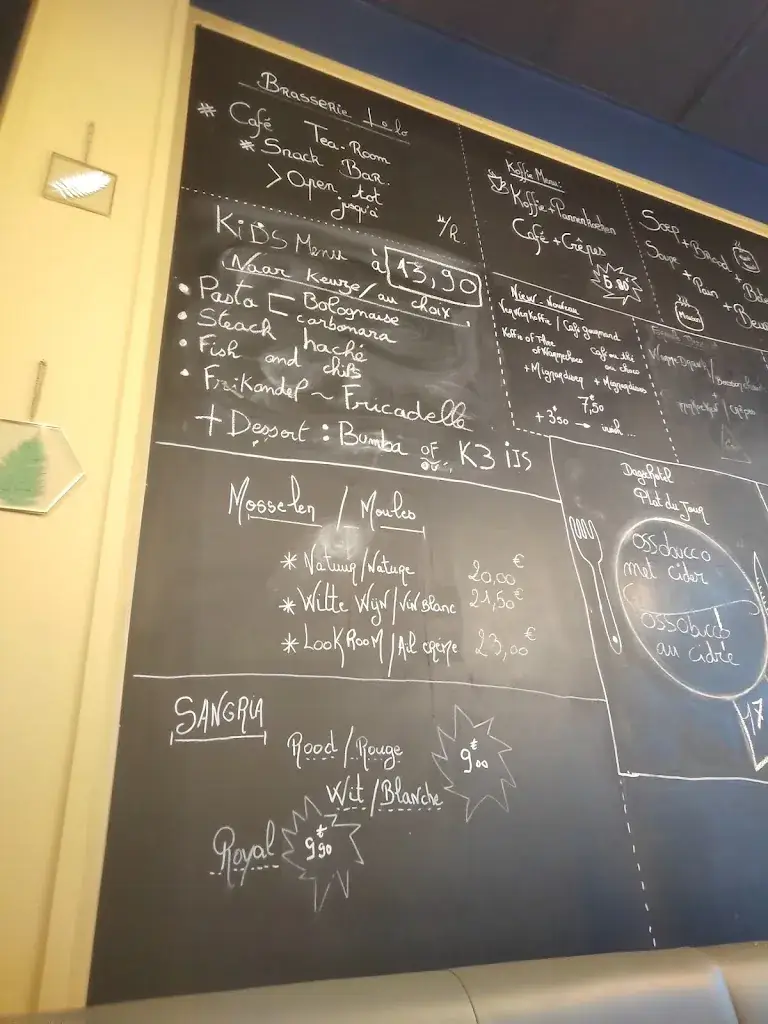 Brasserie Lolo
* Café Tea-Room
* Snack Bar
> Open tot
jusqu'à
u/R.
Kids Menu à 13,90
Naar keuze/au choix
• Pasta Bolognaise
carbonara
• Steack haché
• Fish and chips
• Frikandel ~ Fricadelle
+ Dessert : Bumba of K3 ijs
ou
Mosselen / Moules
* Natuur/Nature 20,00€
* Witte Wijn/Vin Blanc 21,50€
* Look Room/Ail crème 23,00€
SANGRIA
Rood/Rouge
Wit/Blanche
9€00
Royal 9€90
Koffie Menu:
Koffie + Pannenkoeken
Café + Crêpes
6.80
Nieuw - Nouveau
Koffie / Café gourmand
Koffie of Thee café ou thé
ou choco
+ Mignardises
7€,50
+ 3€50 →
Soep + Brood +
Soupe + Pain +
Dagschotel
Plat du Jour
ossobucco
met cider
ossobuco
au cidre
17